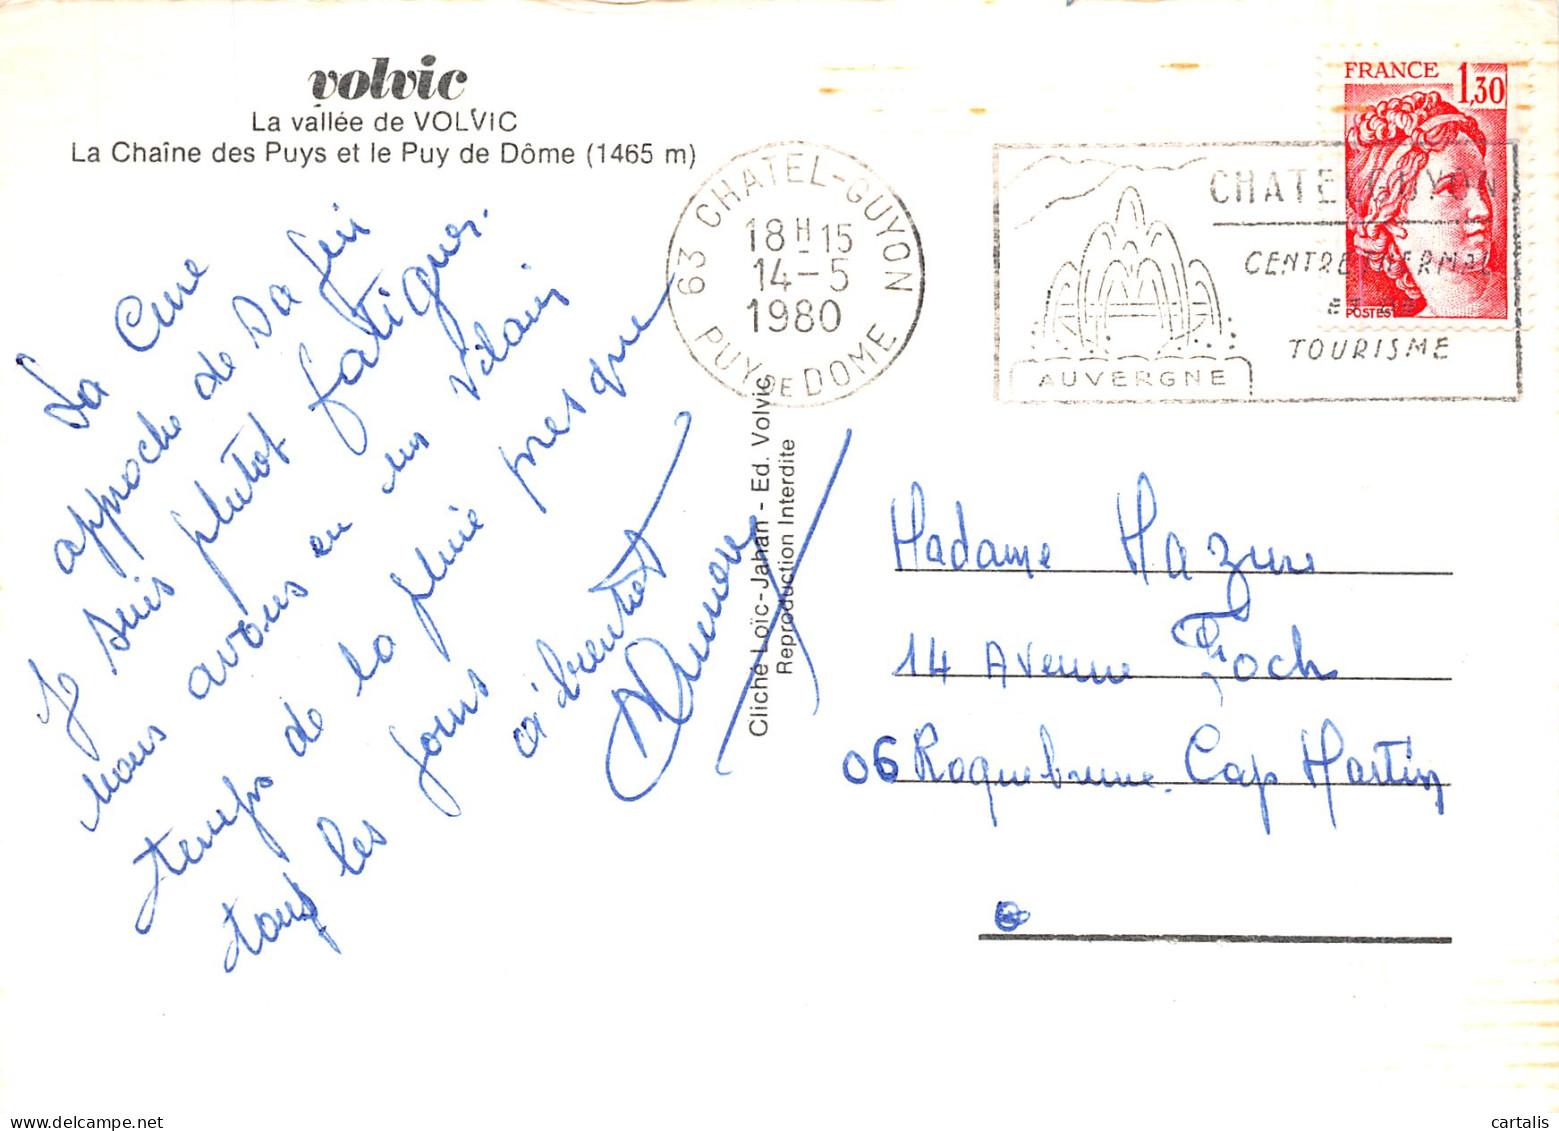 volvic
La vallée de VOLVIC
La Chaîne des Puys et le Puy de Dôme (1465 m)
La Cure
approche de sa fin
Je suis plutot fatiguer.
nous avons eu un vilain
temps de la pluie presque
tous les jours
a bientot
63 CHATEL-GUYON
18H15
14-5
1980
PUY DE DOME
FRANCE 1,30
POSTES
CHATELGUYON
CENTRE THERMAL
ET DE
TOURISME
AUVERGNE
Cliché Loïc-Jahan - Ed. Volvic
Reproduction Interdite
Madame Mazure
14 Avenue Foch
06 Roquebrune. Cap Martin
cartalis